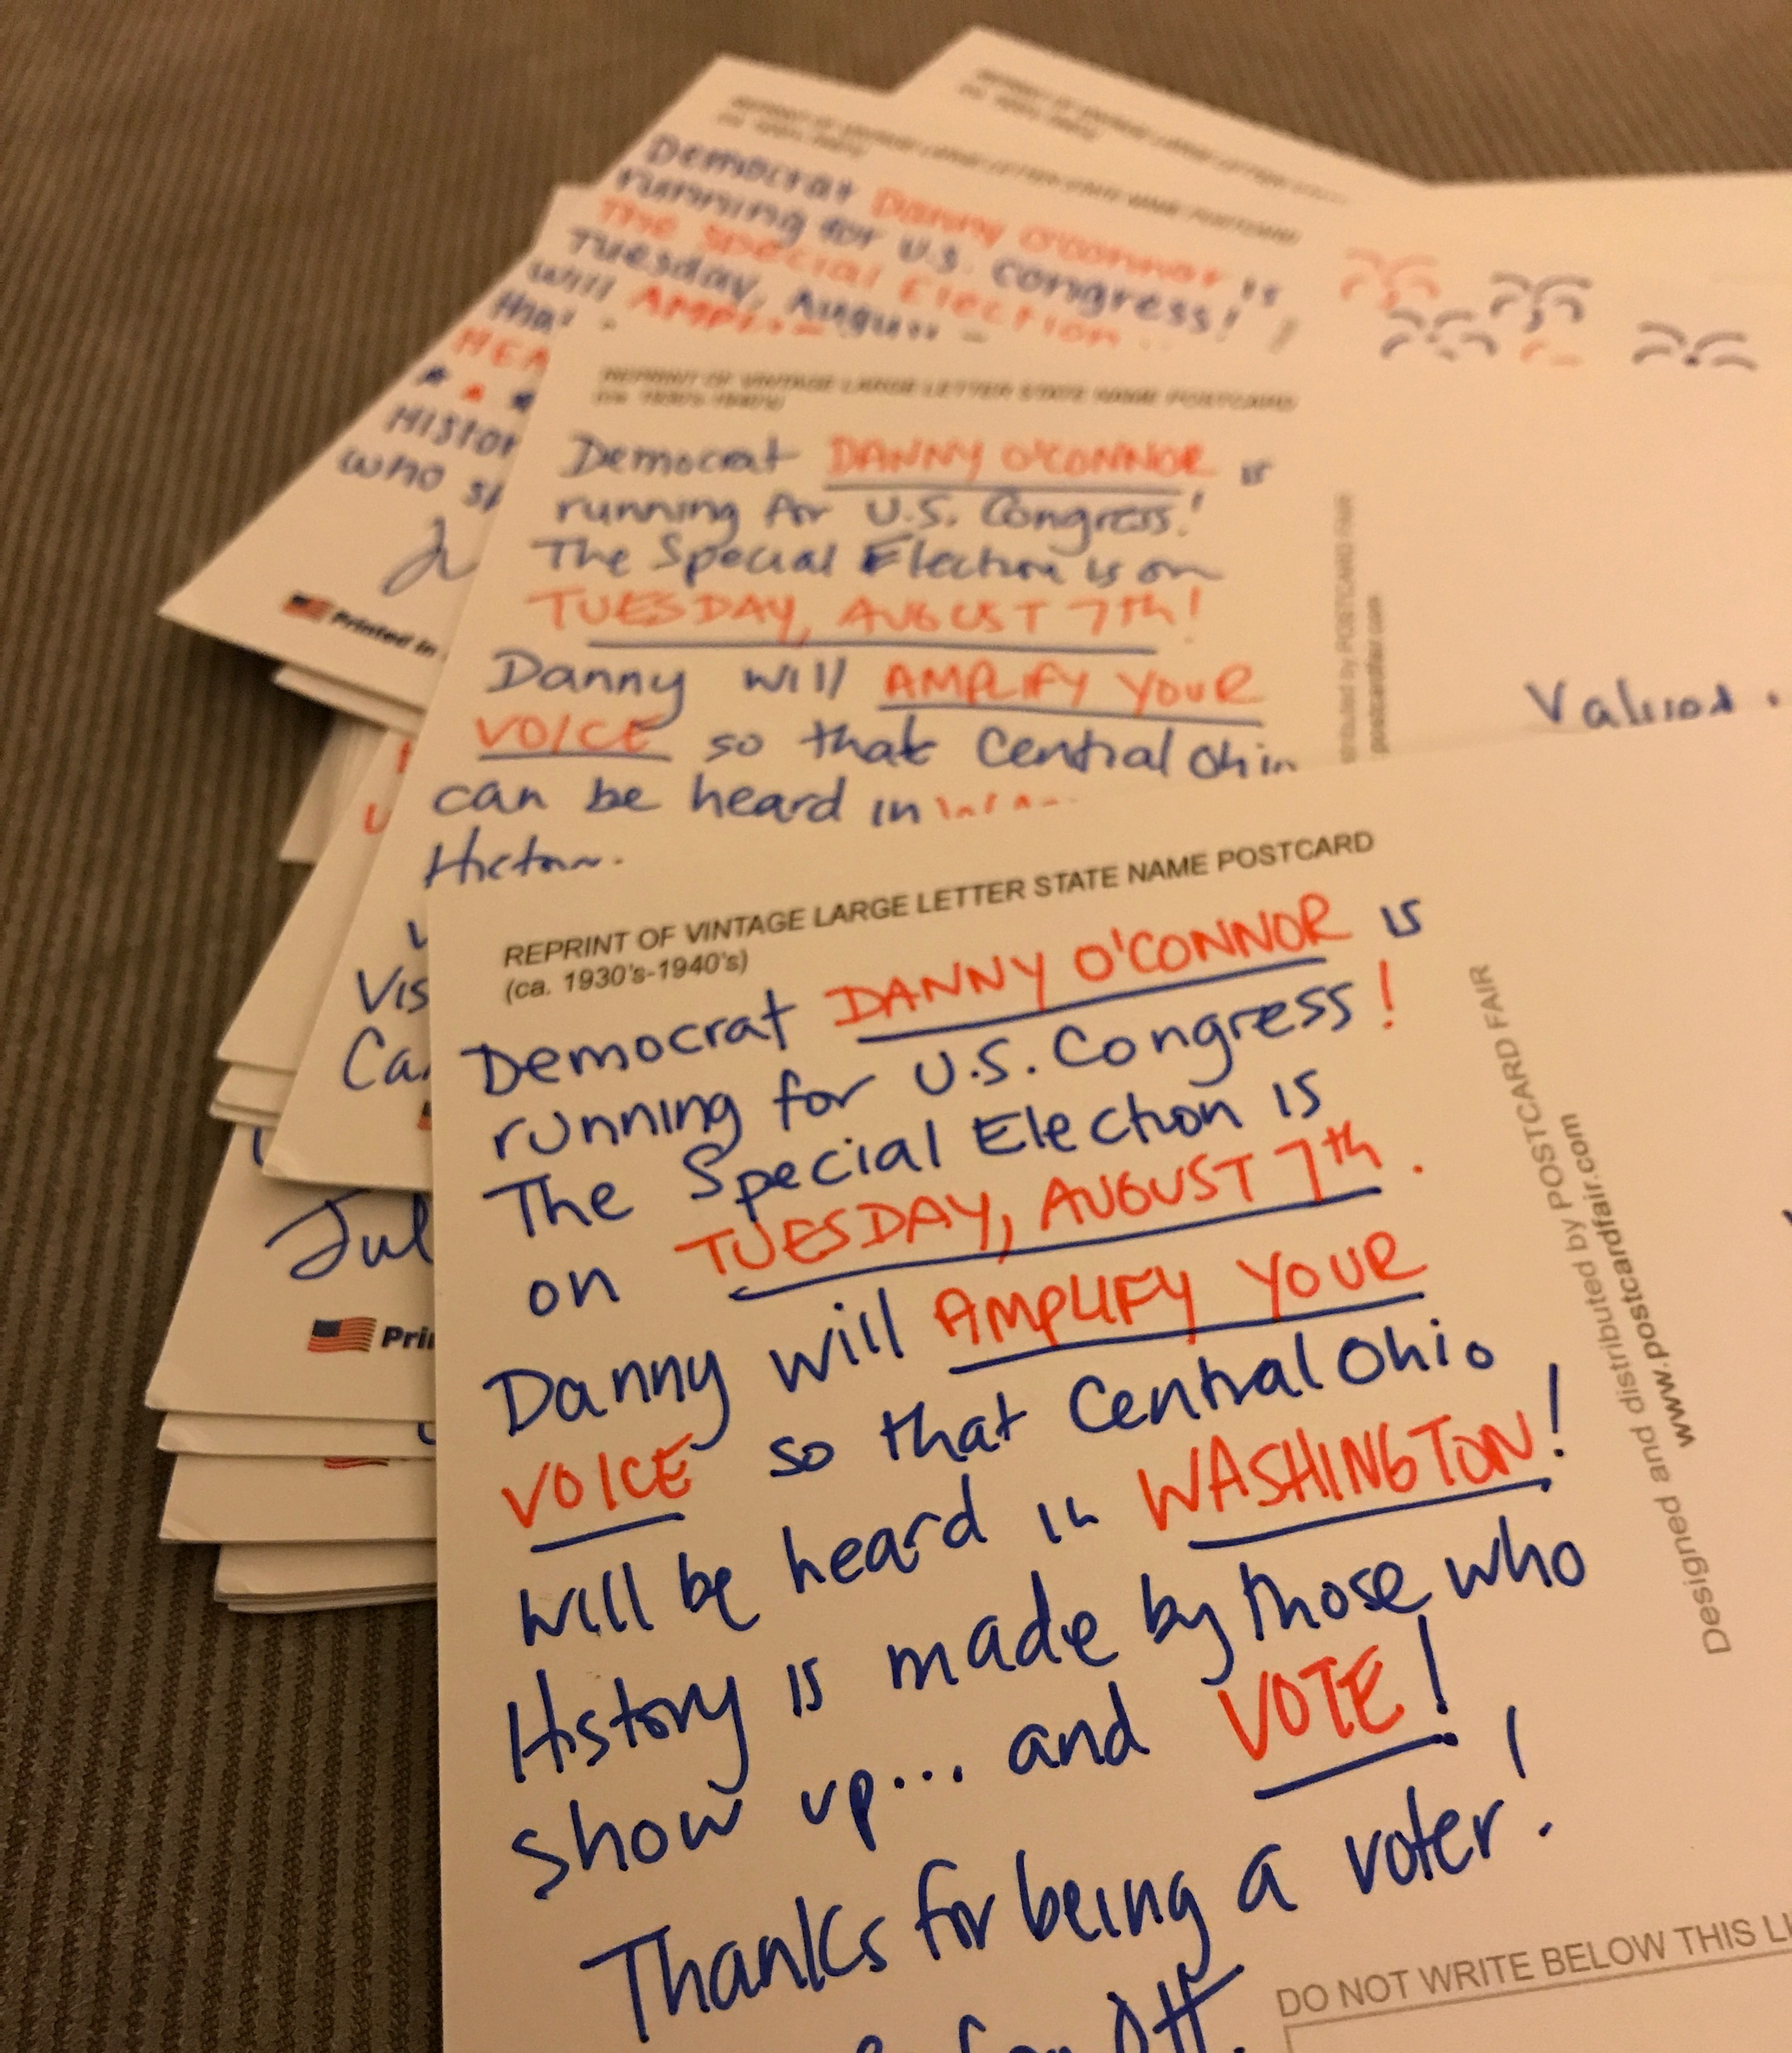 REPRINT OF VINTAGE LARGE LETTER STATE NAME POSTCARD
Democrat Danny O'Connor is
running for U.S. Congress!
The Special Election
Tuesday,
will
HISTOR
who
Printed in
REPRINT OF VINTAGE LARGE LETTER STATE NAME POSTCARD
(ca. 1930's-1940's)
Democrat DANNY O'CONNOR is
running for U.S. Congress!
The Special Election is on
TUESDAY, AUGUST 7th!
Danny will AMPLIFY YOUR
VOICE so that Central Ohio
can be heard in
postcardfair.com
Vis
Ca
Jul
Pri
REPRINT OF VINTAGE LARGE LETTER STATE NAME POSTCARD
(ca. 1930's-1940's)
Democrat DANNY O'CONNOR is
running for U.S. Congress!
The Special Election is
on TUESDAY, AUGUST 7th.
Danny will AMPLIFY YOUR
VOICE so that Central Ohio
will be heard in WASHINGTON!
History is made by those who
show up... and VOTE!
Thanks for being a voter!
Designed and distributed by POSTCARD FAIR
www.postcardfair.com
DO NOT WRITE BELOW THIS LI